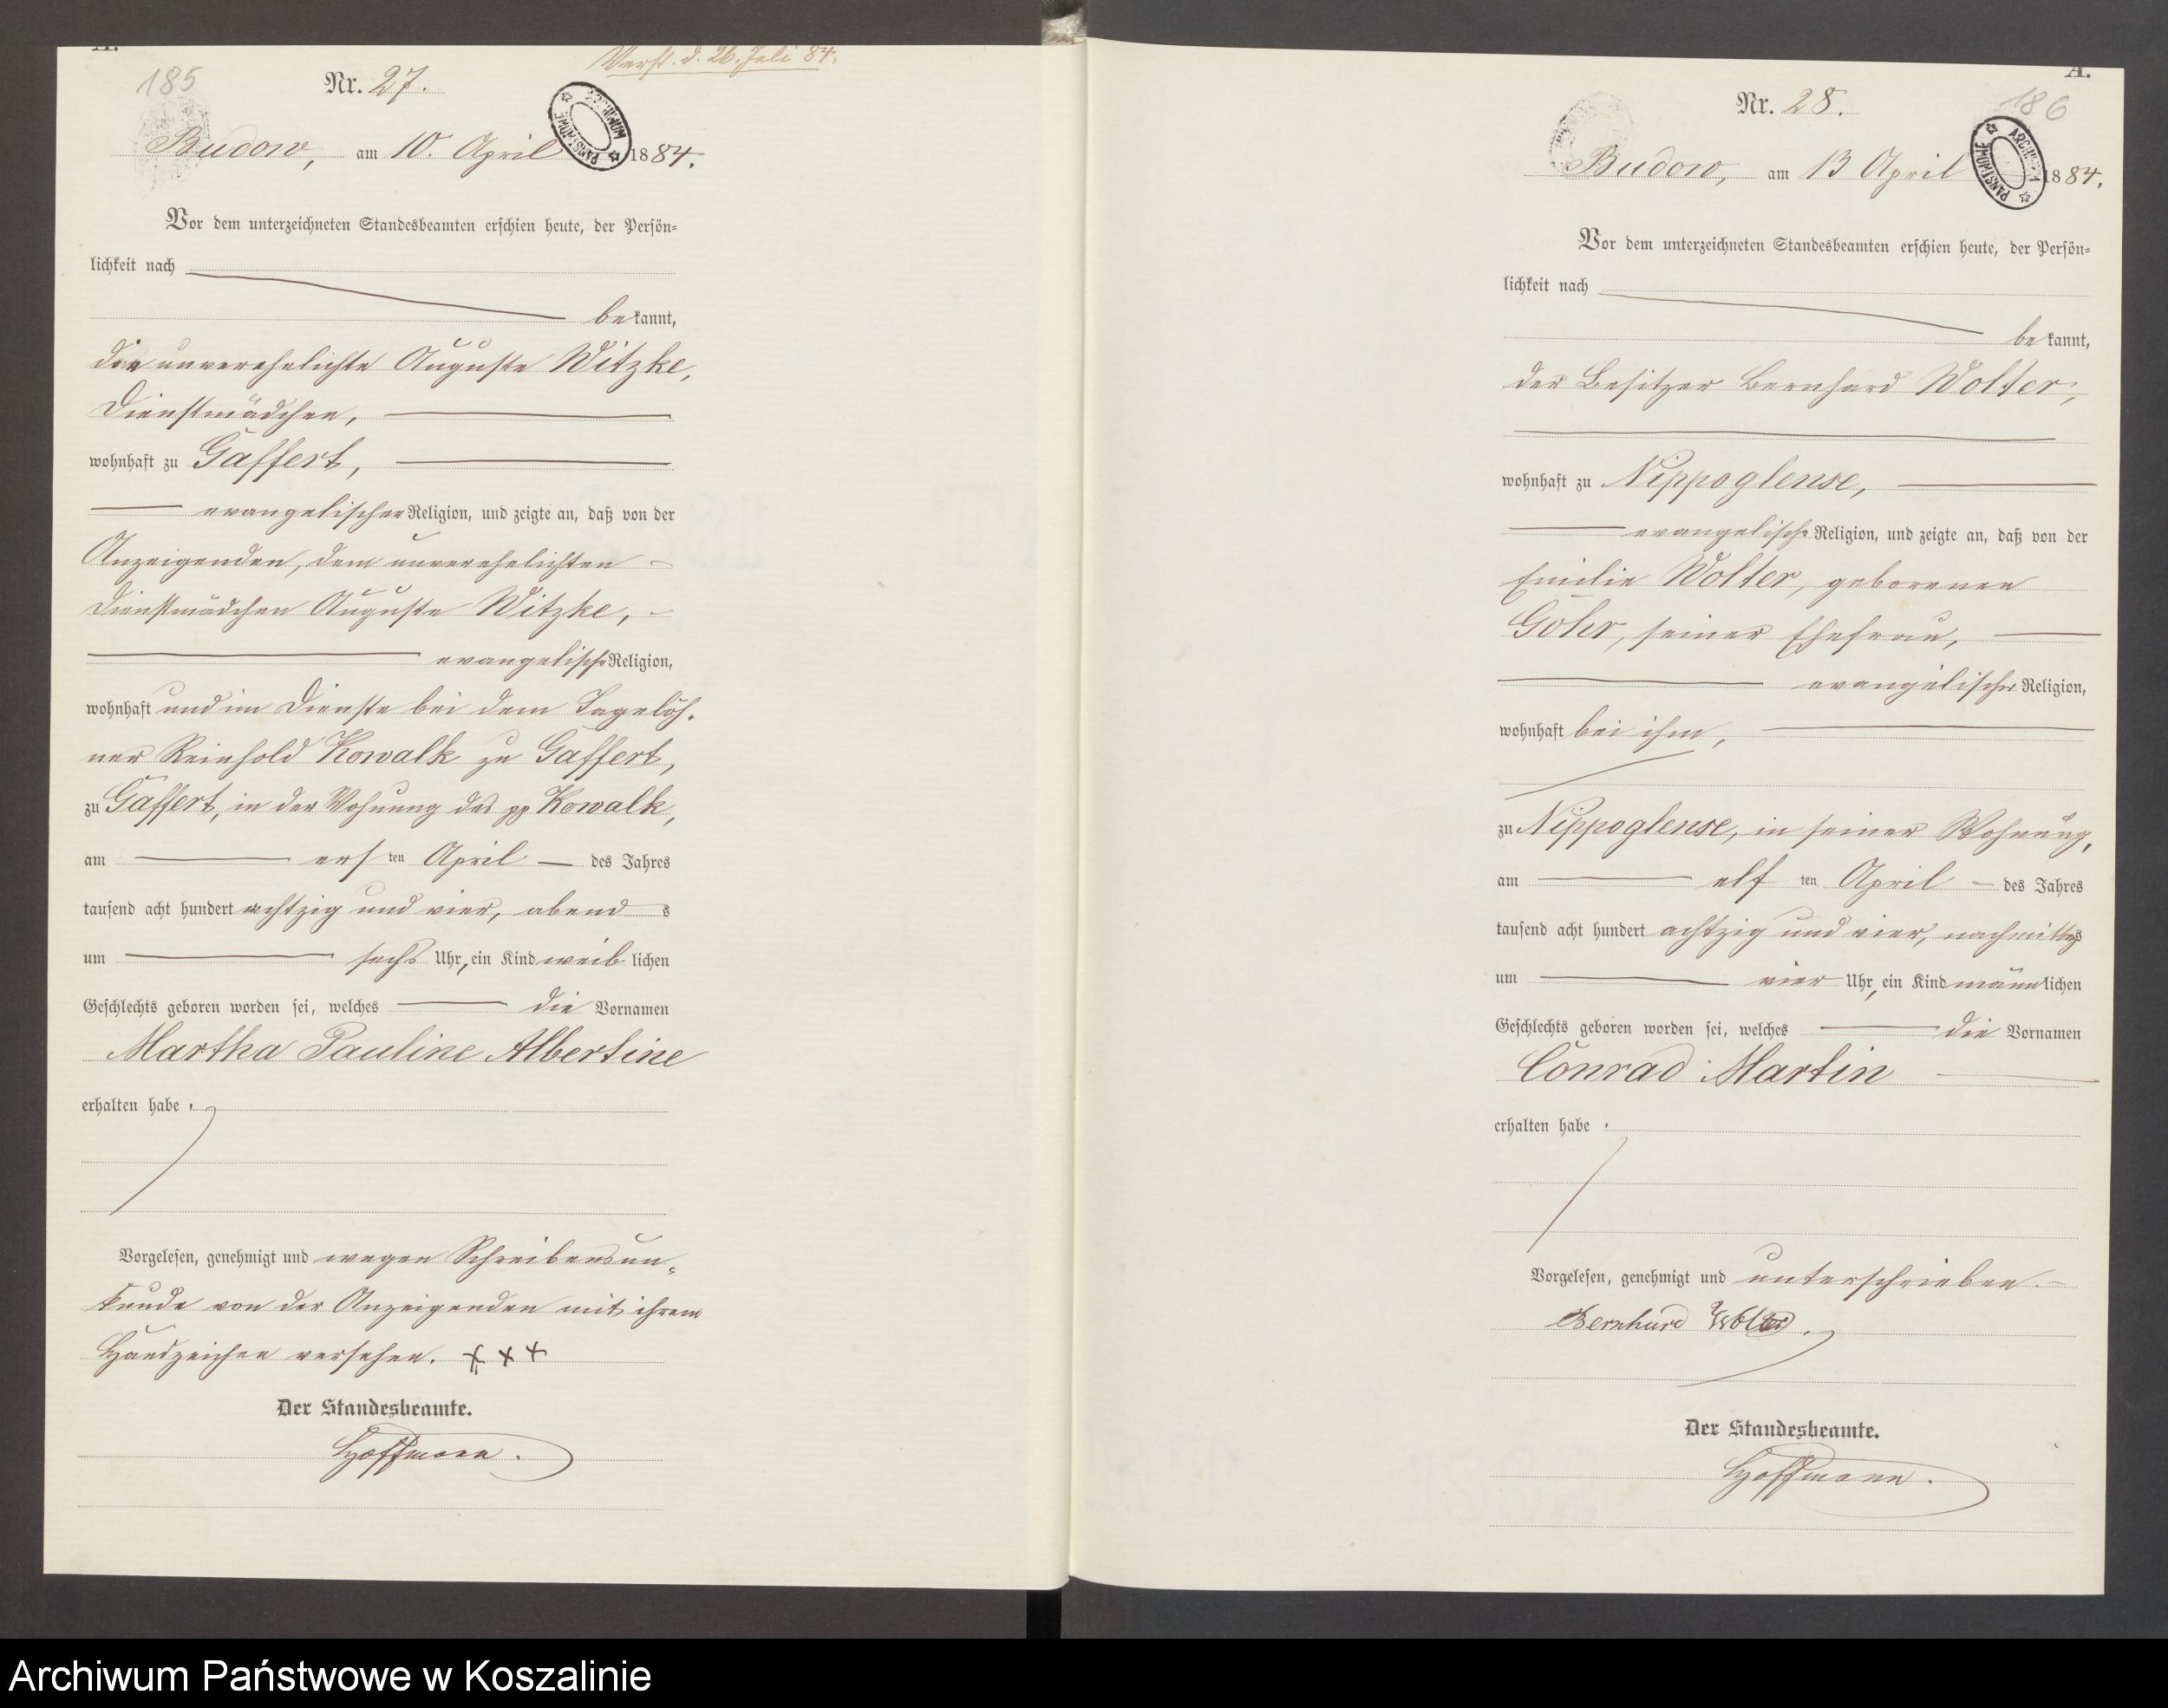 A.
Verst. d. 26. Juli 84.
185
Nr. 27.
Budow, am 10. April 1884.
Vor dem unterzeichneten Standesbeamten erschien heute, der Persön-
lichkeit nach
bekannt,
die unverehelichte Auguste Witzke,
Dienstmädchen,
wohnhaft zu Gaffert,
evangelischer Religion, und zeigte an, daß von der
Anzeigenden, dem unverehelichten
Dienstmädchen Auguste Witzke,
evangelischer Religion,
wohnhaft und im Dienste bei dem Tagelöh-
ner Reinhold Kowalk zu Gaffert,
zu Gaffert, in der Wohnung des pp Kowalk,
am ersten April des Jahres
tausend acht hundert achtzig und vier, abends
um sechs Uhr, ein Kind weiblichen
Geschlechts geboren worden sei, welches die Vornamen
Martha Pauline Albertine
erhalten habe.
Vorgelesen, genehmigt und wegen Schreibensun-
kunde von der Anzeigenden mit ihrem
Handzeichen versehen. +++
Der Standesbeamte.
Hoffmann.
A.
186
Nr. 28.
Budow, am 13 April 1884.
Vor dem unterzeichneten Standesbeamten erschien heute, der Persön-
lichkeit nach
bekannt,
der Besitzer Bernhard Wolter,
wohnhaft zu Nippoglense,
evangelischer Religion, und zeigte an, daß von der
Emilie Wolter, geborenen
Göhr, seiner Ehefrau,
evangelischer Religion,
wohnhaft bei ihm,
zu Nippoglense, in seiner Wohnung,
am elften April des Jahres
tausend acht hundert achtzig und vier, nachmittags
um vier Uhr, ein Kind männlichen
Geschlechts geboren worden sei, welches die Vornamen
Conrad Martin
erhalten habe.
Vorgelesen, genehmigt und unterschrieben.
Bernhard Wolter.
Der Standesbeamte.
Hoffmann.
Archiwum Państwowe w Koszalinie